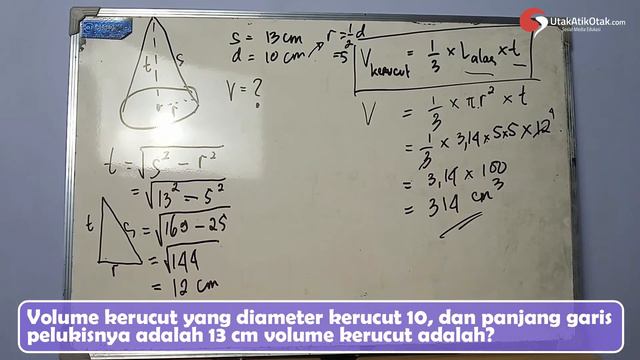 UtakAtikOtak.com
Social Media Edukasi
s = 13 cm r = ½ d
d = 10 cm = 5
V = ?
t s
r r
V kerucut = 1/3 × L alas × t
V = 1/3 × πr² × t
= 1/3 × 3,14 × 5 × 5 × 12 4
= 3,14 × 100
= 314 cm³
t = √s² - r²
= √13² - 5²
t s = √169 - 25
r = √144
= 12 cm
Volume kerucut yang diameter kerucut 10, dan panjang garis
pelukisnya adalah 13 cm volume kerucut adalah?